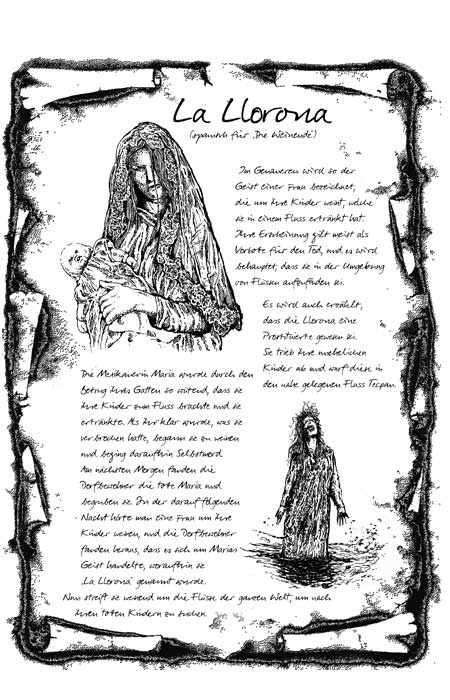 La Llorona
(spanisch für 'Die Weinende')
Im Genaueren wird so der
Geist einer Frau bezeichnet,
die um ihre Kinder weint, welche
sie in einem Fluss ertränkt hat.
Ihre Erscheinung gilt meist als
Vorbote für den Tod, und es wird
behauptet, dass sie in der Umgebung
von Flüssen aufzufinden sei.
Es wird auch erzählt,
dass die Llorona eine
Prostituierte gewesen sei.
Sie trieb ihre unehelichen
Kinder ab und warf diese in
den nahe gelegenen Fluss Tecpan.
Die Mexikanerin Maria wurde durch den
Betrug ihres Gatten so wütend, dass sie
ihre Kinder zum Fluss brachte und sie
ertränkte. Als ihr klar wurde, was sie
verbrochen hatte, begann sie zu weinen
und beging daraufhin Selbstmord.
Am nächsten Morgen fanden die
Dorfbewohner die tote Maria und
begruben sie. In der darauf folgenden
Nacht hörte man eine Frau um ihre
Kinder weinen, und die Dorfbewohner
fanden heraus, dass es sich um Marias
Geist handelte, woraufhin sie
'La Llorona' genannt wurde.
Nun streift sie weinend um die Flüsse der ganzen Welt, um nach
ihren toten Kindern zu suchen.